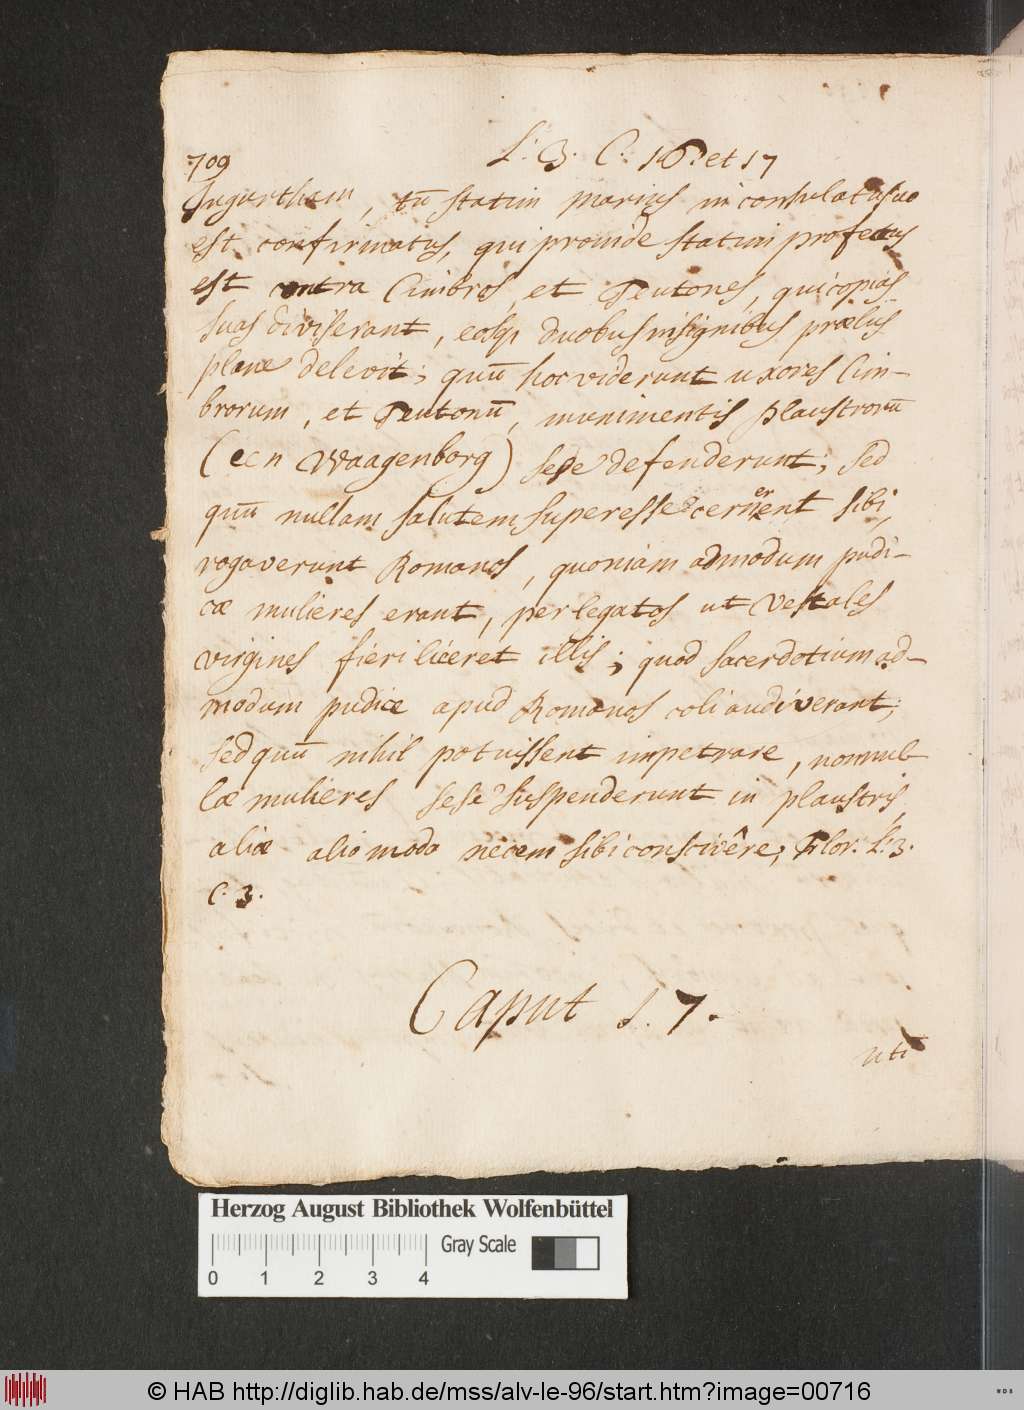 709
L: 3. C: 16. et 17
Jugurtham, tū statim Marius in consulatu suo
est confirmatus, qui proinde statim profectus
est contra Cimbros, et Teutones, qui copias
suas diviserant, eosq; duobus insignibus prœlijs
plane delevit; quū hoc viderunt uxores Cim-
brorum, et Teutonū, munimentis plaustrorū
(een Waagenborg) sese defenderunt; sed
quū nullam salutem superesse cernerent sibi,
rogaverunt Romanos, quoniam admodum pudi-
cæ mulieres erant, per legatos ut Vestales
virgines fieri liceret illis; quod sacerdotium ad-
modum pudice apud Romanos coli audiverant;
sed quū nihil potuissent impetrare, nonnul-
læ mulieres sese suspenderunt in plaustris,
aliæ alio modo necem sibi conscivêre; Flor: L: 3.
C. 3.
Caput 17.
uti
Herzog August Bibliothek Wolfenbüttel
0 1 2 3 4
Gray Scale
© HAB http://diglib.hab.de/mss/alv-le-96/start.htm?image=00716